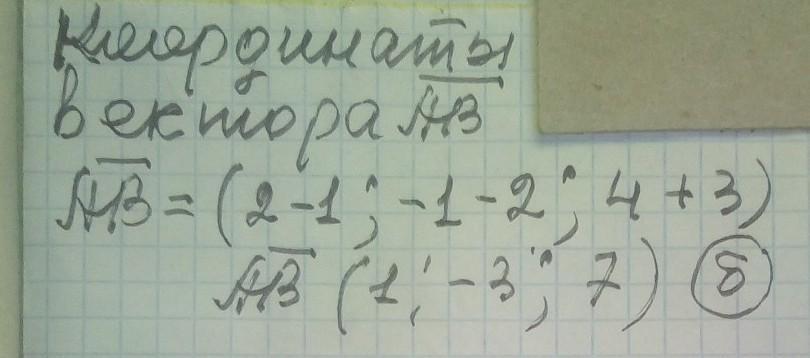 Координаты
вектора AB
AB = (2-1; -1-2; 4+3)
AB (1; -3; 7) б